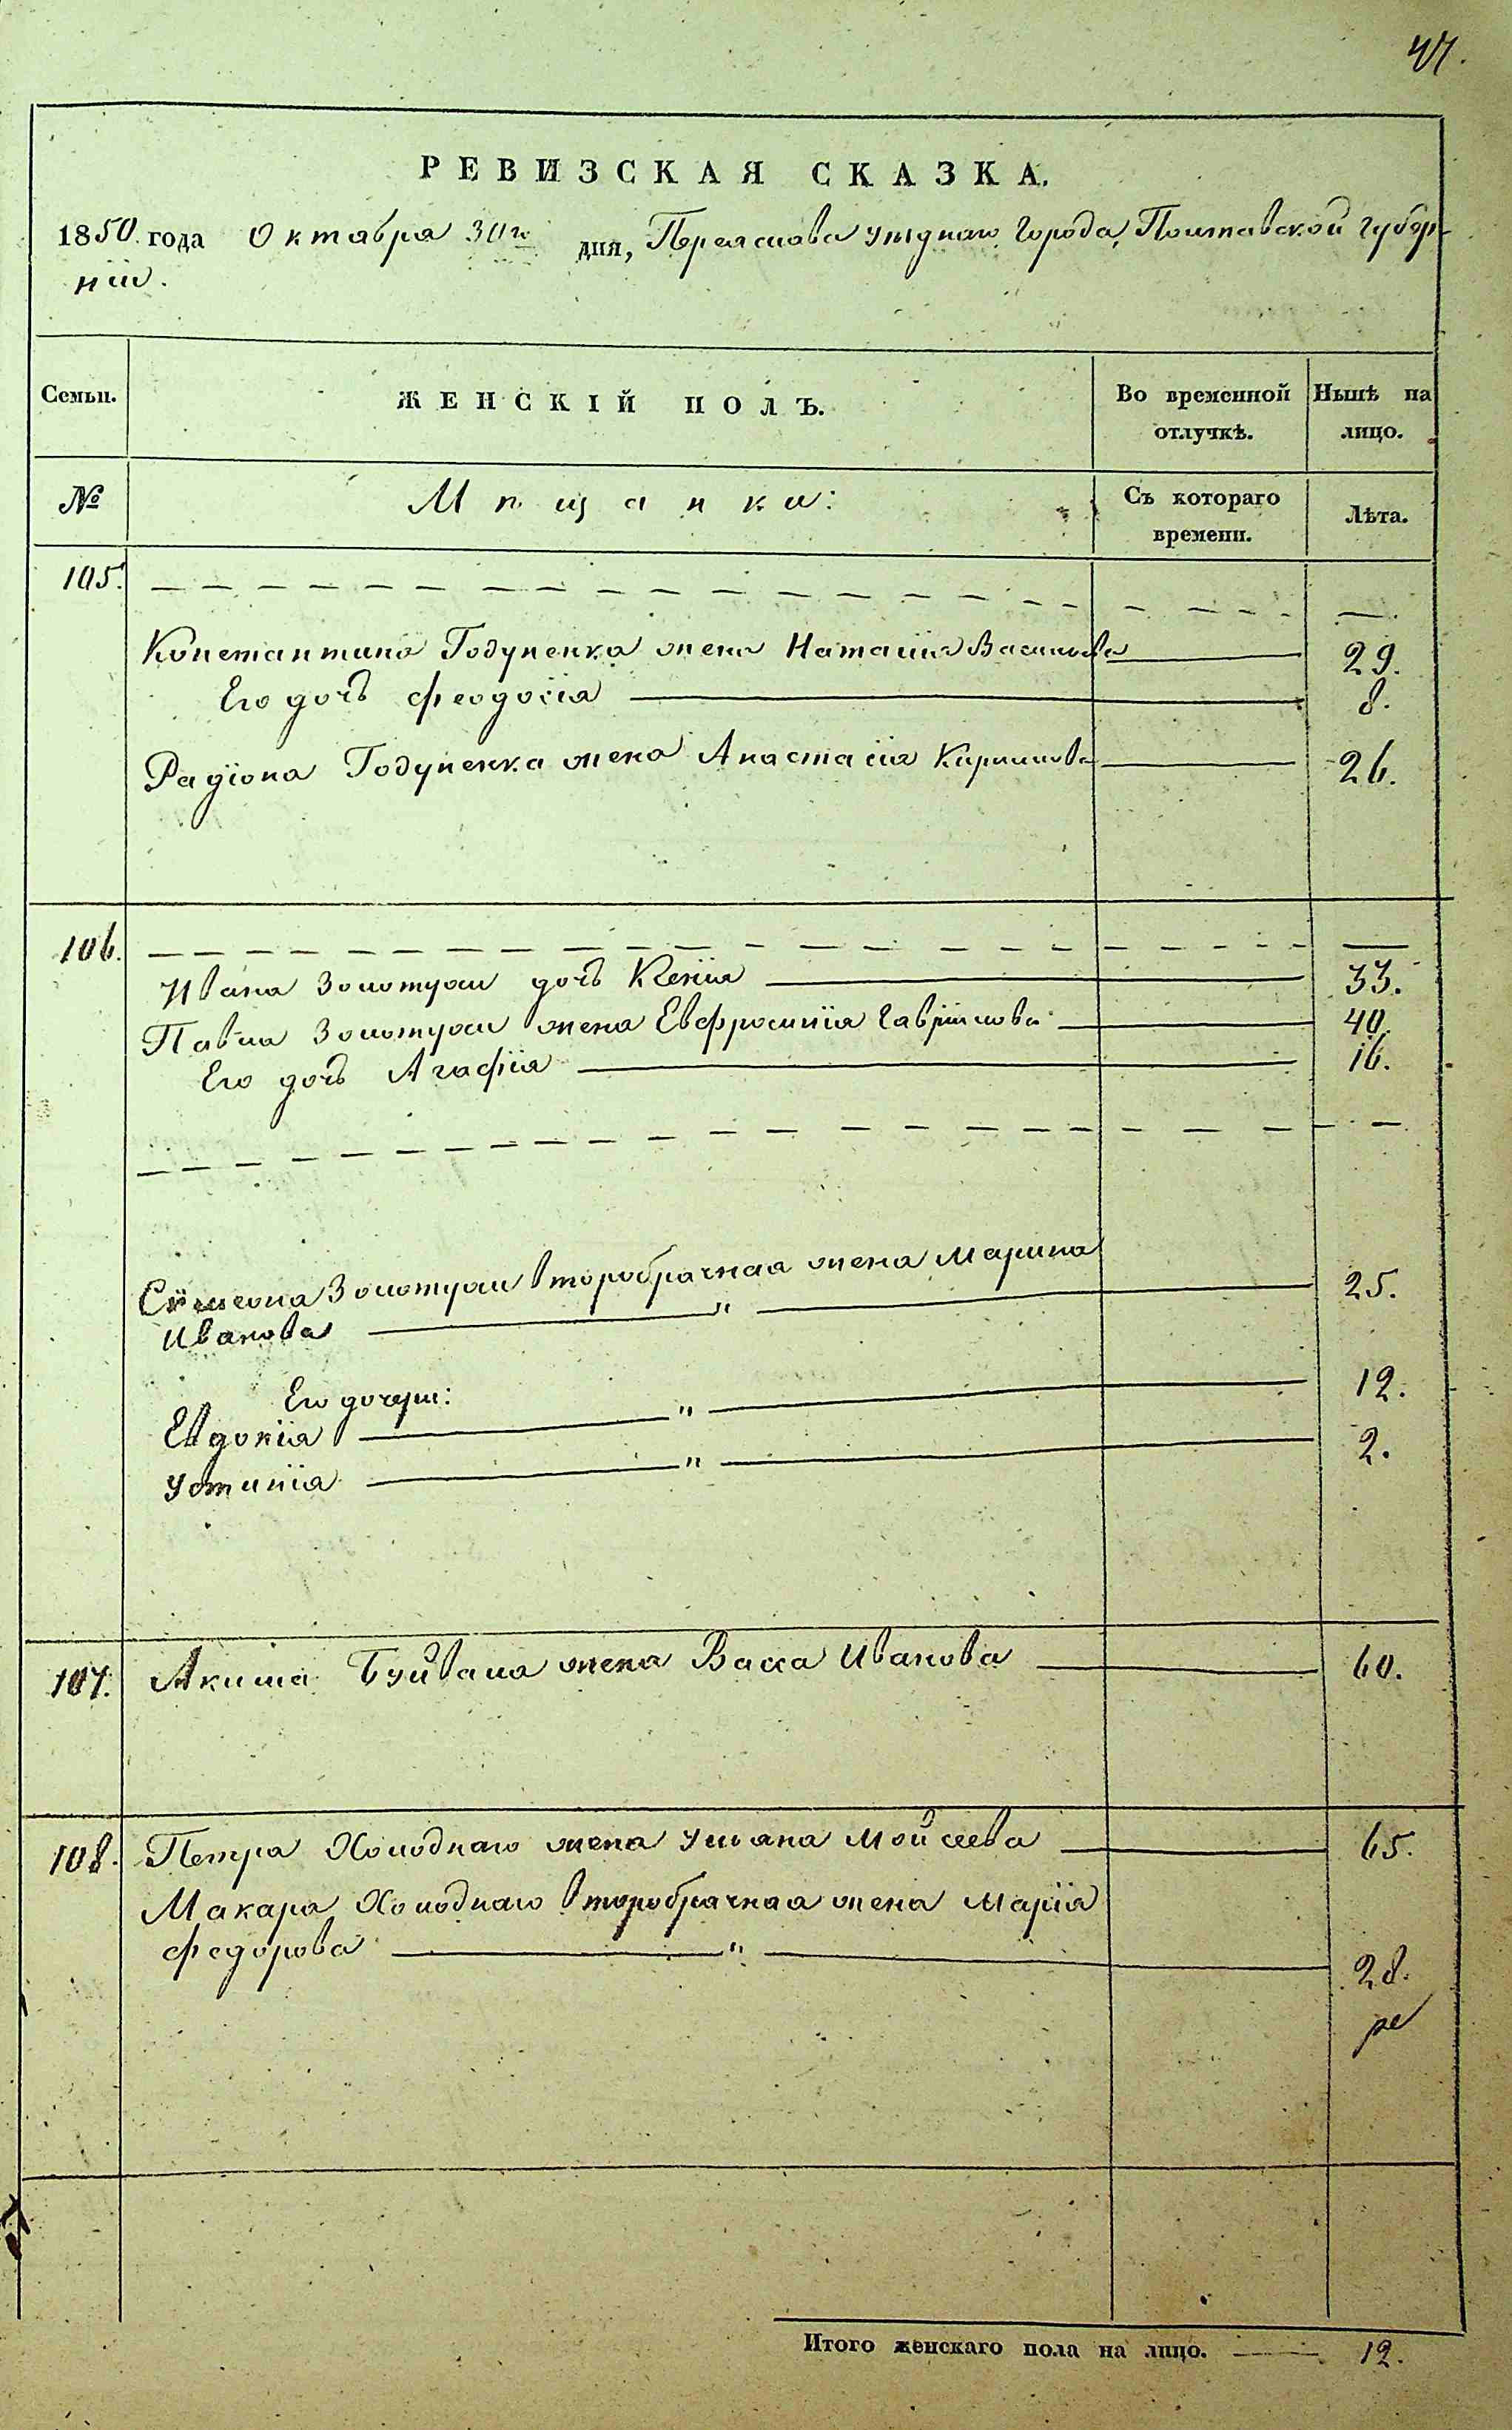 47.
РЕВИЗСКАЯ СКАЗКА.
1850. года Октября 30го дня, Переяслова уѣзднаго города, Полтавской губер-
нiи.
Семьи. ЖЕНСКІЙ ПОЛЪ. Во временной отлучкѣ. Нынѣ на лицо.
№ Мѣщанки: Съ котораго времени. Лѣта.
105.
Константина Годуненка жена Наталiя Васильева 29.
Его дочь Феодосiя 8.
Радiона Годуненка жена Анастасiя Кирилова 26.
106.
Ивана Золотухи дочь Ксенiя 33.
Павла Золотухи жена Евфросинiя Гаврiилова 40.
Его дочь Агафiя 16.
Сѵмеона Золотухи второбрачная жена Марина
Иванова " 25.
Его дочери:
Евдокiя " 12.
Устинiя " 2.
107. Акима Буйвала жена Васса Иванова 60.
108. Петра Холоднаго жена Ульяна Мойсеева 65.
Макара Холоднаго второбрачная жена Марiя
Федорова " 28.
Итого женскаго пола на лицо. 12.